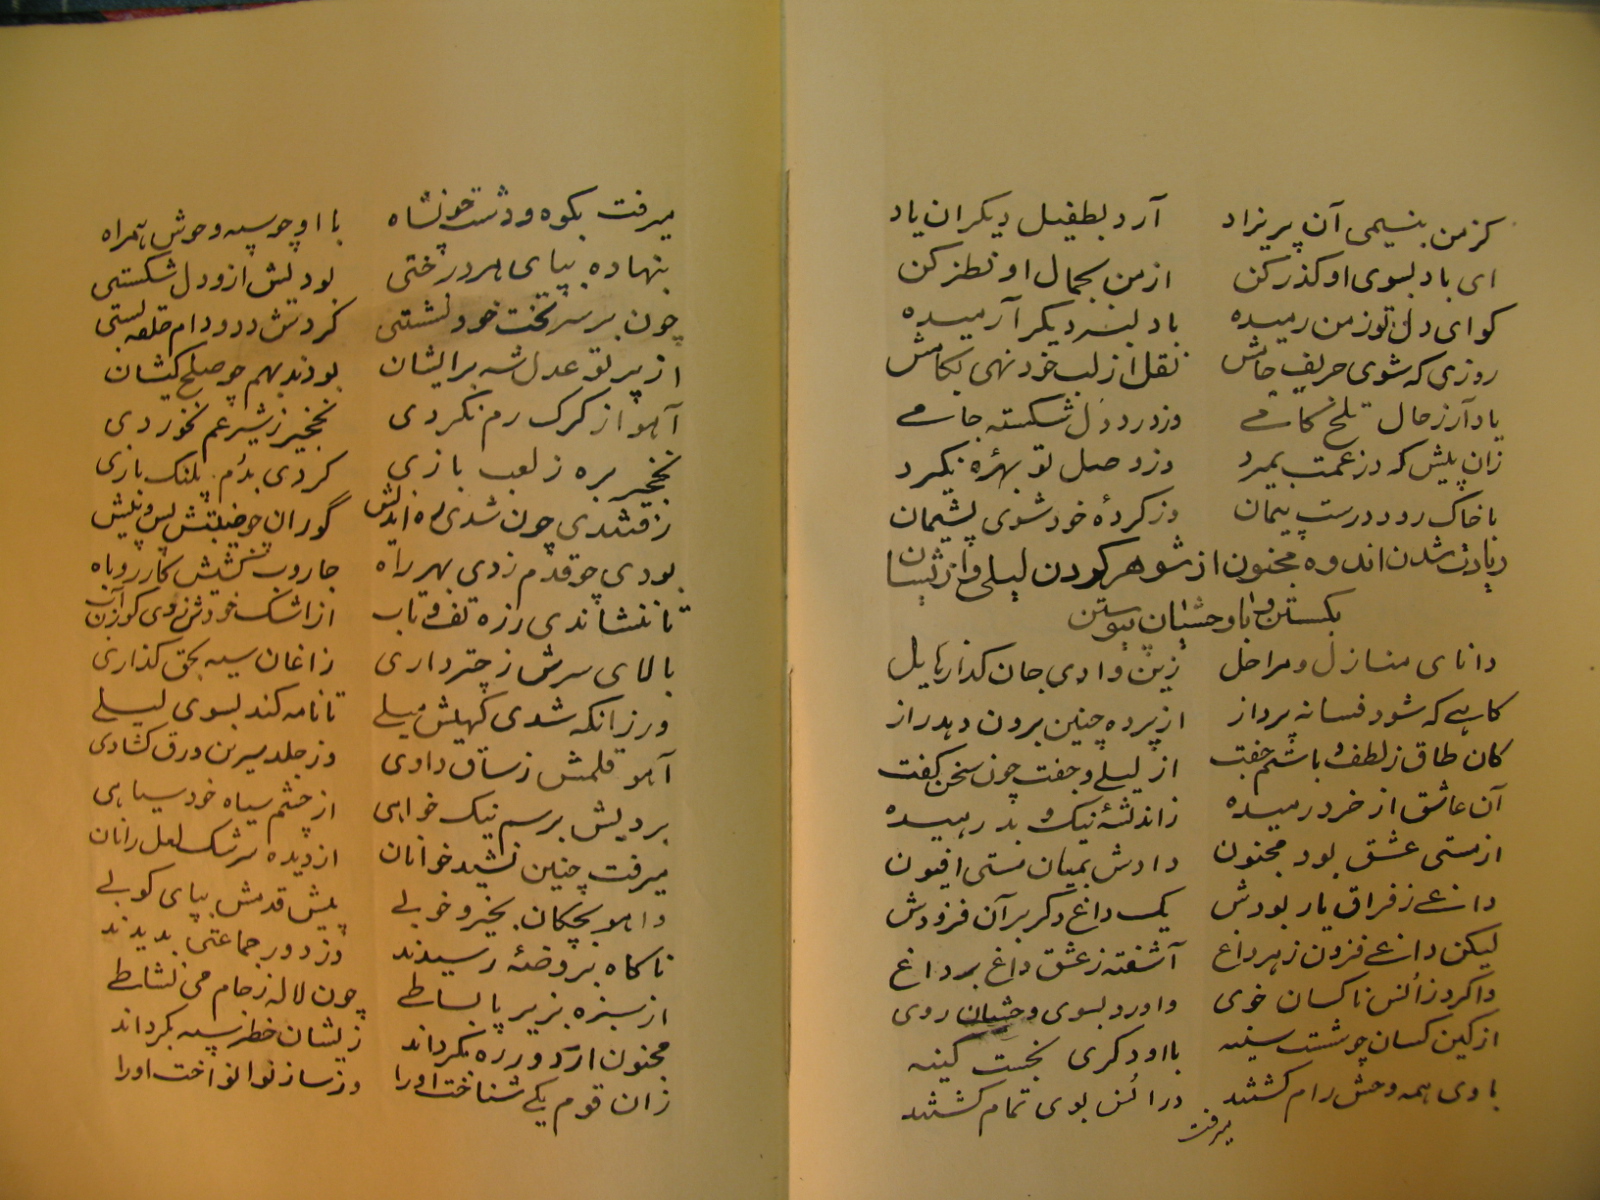 کز من بنسیمی آن پریزاد آرد بطفیل دیگران یاد
ای باد بسوی او گذر کن از من بجمال او نظر کن
کو ای دل تو ز من رمیده با دلبر دیگر آرمیده
روزی که شوی حریف جامش نقل از لب خود نهی بکامش
یاد آر ز حال تلخ کامے وز درد دل شکسته جامے
زان پیش که در غمت بمیرد وز وصل تو بهره نگیرد
با خاک رود درست پیمان وز کردهٔ خود شوی پشیمان
زیادت شدن اندوه مجنون از شوهر کردن لیلی و از انسان
بگسستن و با وحشیان پیوستن
دانای منازل و مراحل زین وادی جان گذار هایل
گاهے که شود فسانه پرداز از پرده چنین برون دهد راز
کان طاق ز لطف با ستم جفت از لیلے و جفت چون سخن گفت
آن عاشق از خرد رمیده ز اندیشهٔ نیک و بد رهیده
از مستی عشق بود مجنون دادش بمیان مستی افیون
داغے ز فراق یار بودش یک داغ دگر بر آن فزودش
لیکن داغے فزون ز هر داغ آشفته ز عشق داغ بر داغ
واکرد ز انس ناکسان خوی واورد بسوی وحشیان روی
از کین کسان چو شست سینه با او دگری نجست کینه
با وی همه وحش رام گشتند در انس بوی تمام گشتند
میرفت
میرفت بکوه و دشت چون شاه با او چو سپه وحوش همراه
بنهاده بپای هر درختی بودیش از و دل شکستی
چون بر سر تخت خود نشستی کردش دد و دام حلقه بستی
از پرتو عدل شه برایشان بودند بهم چو صلح کیشان
آهو از گرگ رم نکردی نخجیر ز شیر غم نخوردی
نخجیر بره ز لعب بازی کردی بدم پلنگ بازی
رفتندی چون شدی ره اندیش گوران چو جنیبتش پس و پیش
بودی چو قدم زدی بهر راه جاروب کشیش کار روباه
تا ننشاندی ز ره تف و تاب از اشک خودش زدی گوزن آب
بالای سرش ز چتر داری زاغان سیه بحق گذاری
ور زانکه شدی گهیش میلے تا نامه کند بسوی لیلے
آهو قلمش ز ساق دادی وز جلد سرین ورق گشادی
بردیش برسم نیک خواهی از چشم سیاه خود سیاهی
میرفت چنین نشید خوانان از دیده سرشک لعل رانان
واهو بچکان بخیز و خوبے پیش قدمش بپای کوبے
ناگاه بروضهٔ رسیدند وز دور جماعتی بدیدند
از سبزه بزیر پا بساطے چون لاله ز جام می نشاطے
مجنون از دور ره بگرداند زیشان خطر سپه بگرداند
زان قوم یکے شناخت او را وز ساز نوا نواخت او را